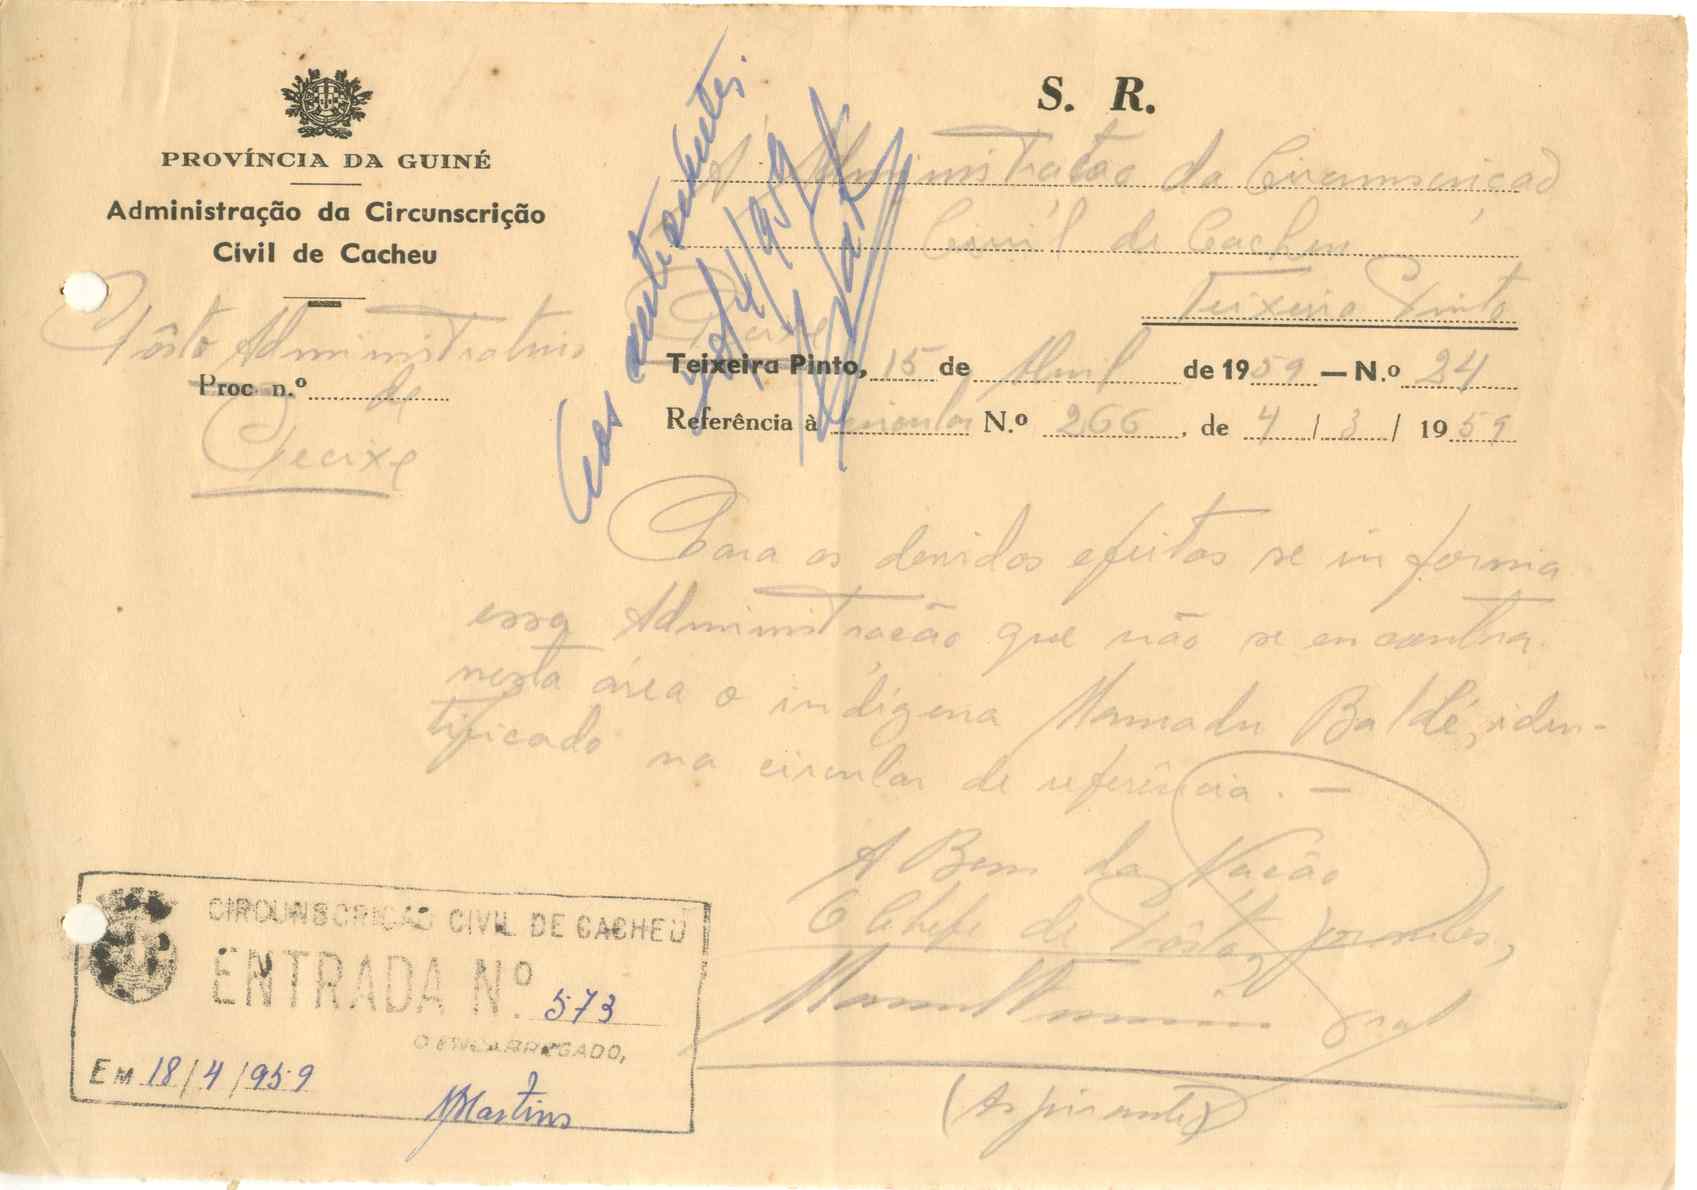 PROVÍNCIA DA GUINÉ
Administração da Circunscrição
Civil de Cacheu
Pôsto Administrativo
Proc. n.º de
Pecixe
S. R.
À Administração da Circunscrição
Civil de Cacheu
Teixeira Pinto
Pecixe
Teixeira Pinto, 15 de Abril de 1959 — N.º 24
Referência à circular N.º 266, de 4 / 3 / 1959
Aos antecedentes
/4/959
Para os devidos efeitos se informa
essa Administração que não se encontra
nesta área o indígena Mamadu Baldé, iden-
tificado na circular de referência. —
A Bem da Nação
O Chefe de Pôsto,
Manuel
(Aspirante)
CIRCUNSCRIÇÃO CIVIL DE CACHEU
ENTRADA Nº. 573
O ENCARREGADO,
EM 18/4/959
Martins